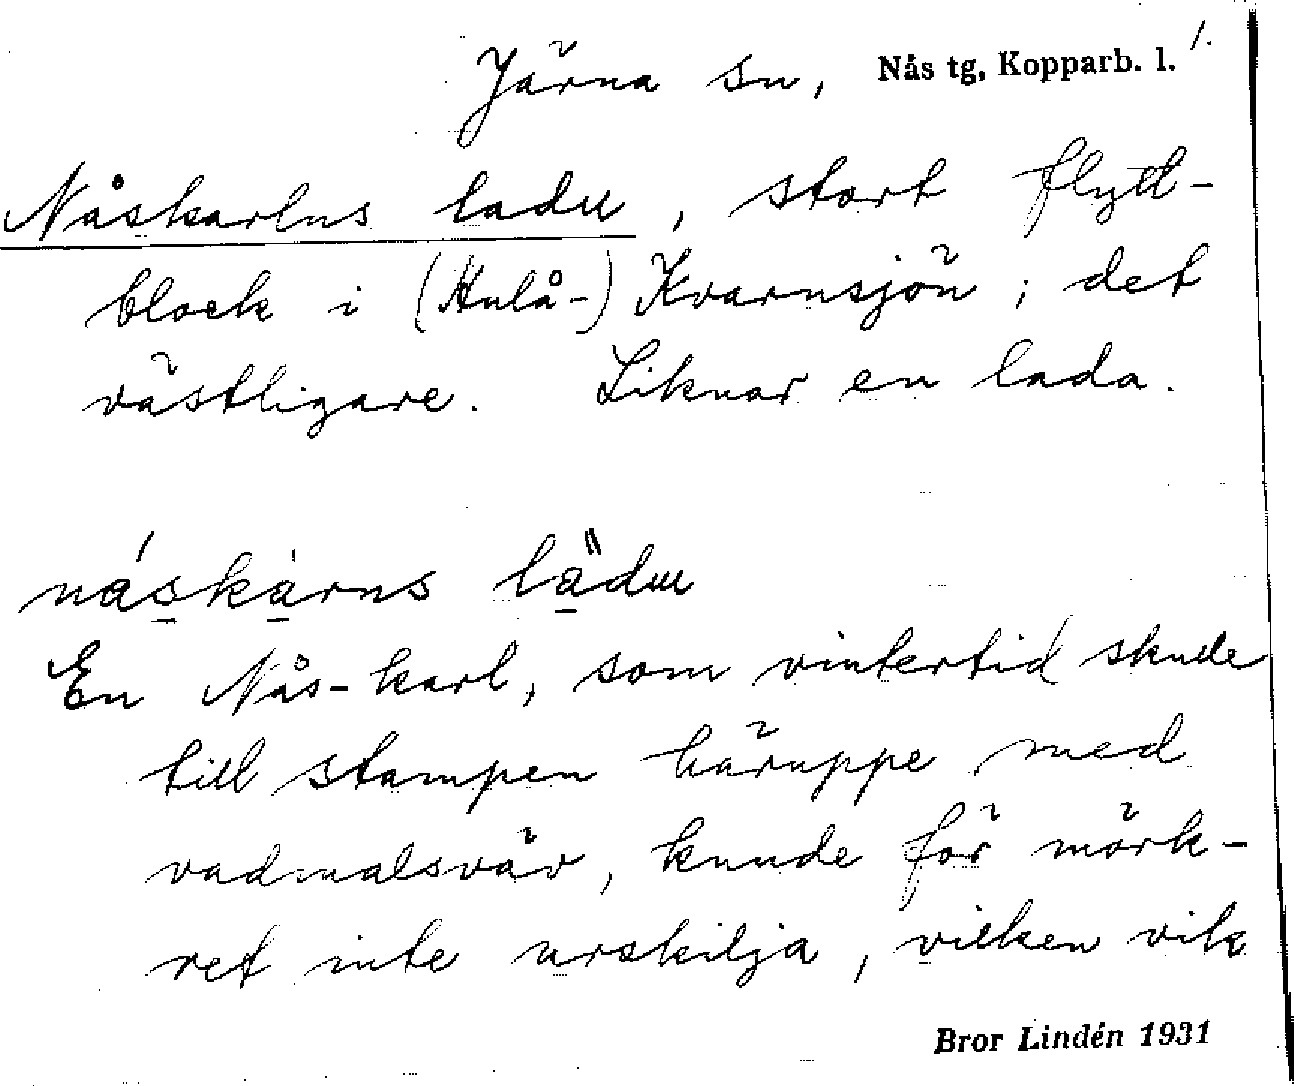 1.
Järna sn, Nås tg, Kopparb. l.
Nåskarlns ladu, stort flytt-
block i (Hulå-) Kvarnsjön; det
västligare. Liknar en lada.
náskàrns lädu
En Nås-karl, som vintertid skulle
till stampen häruppe med
vadmalsväv, kunde för mörk-
ret inte urskilja, vilken vik
Bror Lindén 1931